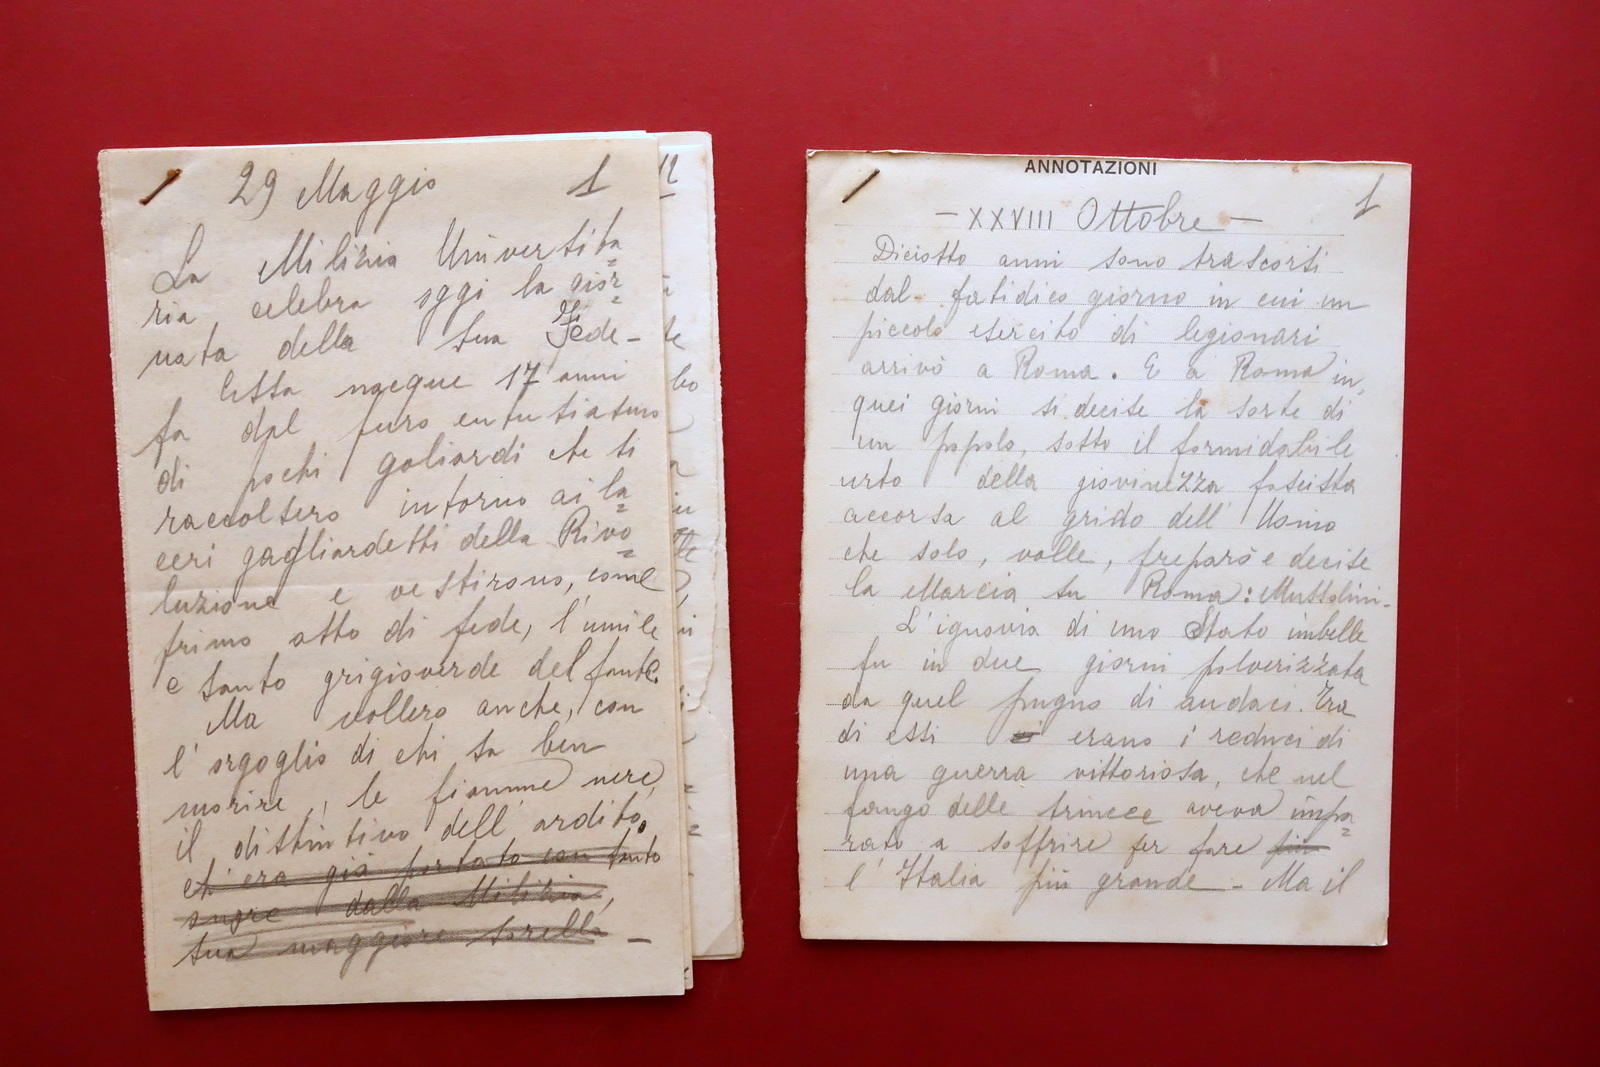 29 Maggio 1
La Milizia Universita
ria celebra oggi la gior
nata della sua Fede -
Essa nacque 17 anni
fa dal puro entusiasmo
di pochi goliardi che si
raccolsero intorno ai la
ceri gagliardetti della Rivo
luzione e vestirono, come
primo atto di fede, l'umile
e santo grigioverde del fante.
Ma vollero anche, con
l'orgoglio di chi sa ben
morire, le fiamme nere,
il distintivo dell'ardito.
ch'era già portato con tanto
sangre dalla Milizia,
sua maggiore sorella -
12
ANNOTAZIONI
- XXVIII Ottobre - 1
Diciotto anni sono trascorsi
dal fatidico giorno in cui un
piccolo esercito di legionari
arrivò a Roma. E a Roma in
quei giorni si decise la sorte di
un popolo, sotto il formidabile
urto della giovinezza fascista
accorsa al grido dell'Uomo
che solo, volle, preparò e decise
la Marcia su Roma: Mussolini.
L'ignavia di uno Stato imbelle
fu in due giorni polverizzata
da quel pugno di audaci. Tra
di essi erano i reduci di
una guerra vittoriosa, che nel
fango delle trincee aveva impa
rato a soffrire per fare più
l'Italia più grande - Ma il